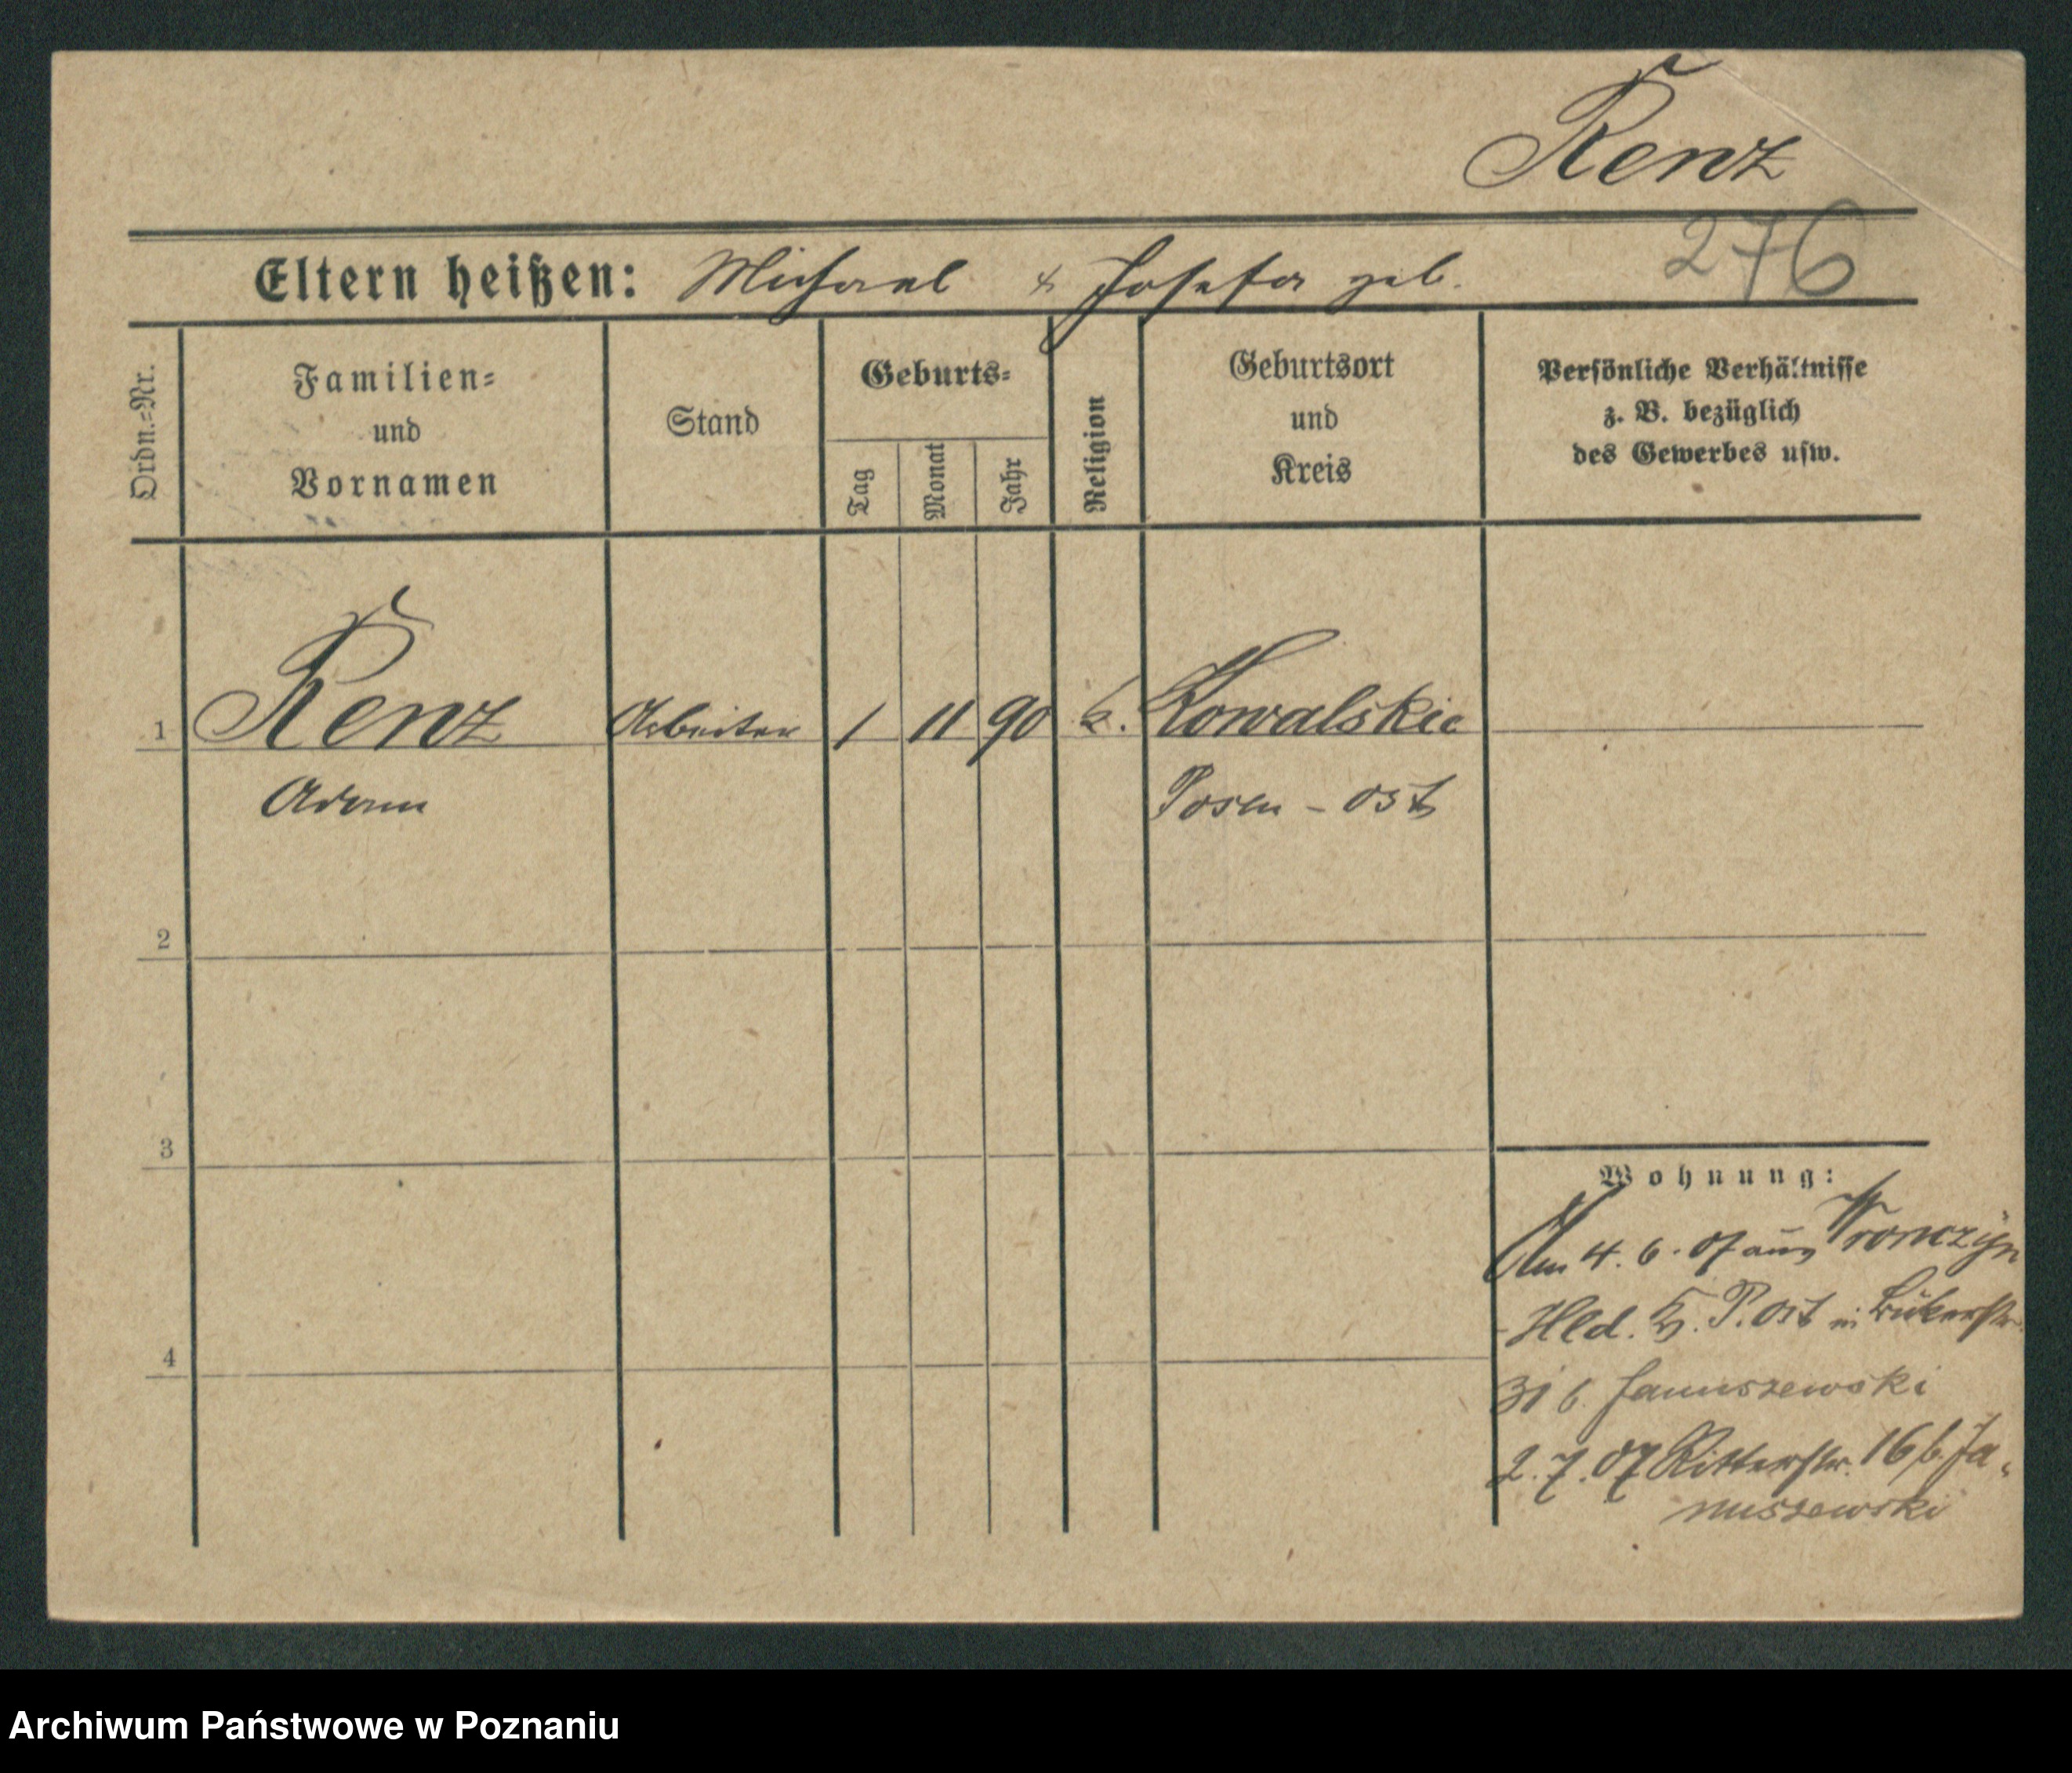 Renz
276
Eltern heißen: Michael & Josefa geb.
Ordn.=Nr.
Familien=
und
Vornamen
Stand
Geburts=
Tag
Monat
Jahr
Religion
Geburtsort
und
Kreis
Persönliche Verhältnisse
z. B. bezüglich
des Gewerbes usw.
1 Renz Arbeiter 1 11 90 k. Kowalskie
Adam Posen - Ost
2
3
4
Wohnung:
Am 4. 6. 07 aus Wronczyn
Hld. K. P. Ost in
31 b. Januszewski
2. 7. 07 Ritterstr. 16 b. Ja-
nuszewski
Archiwum Państwowe w Poznaniu